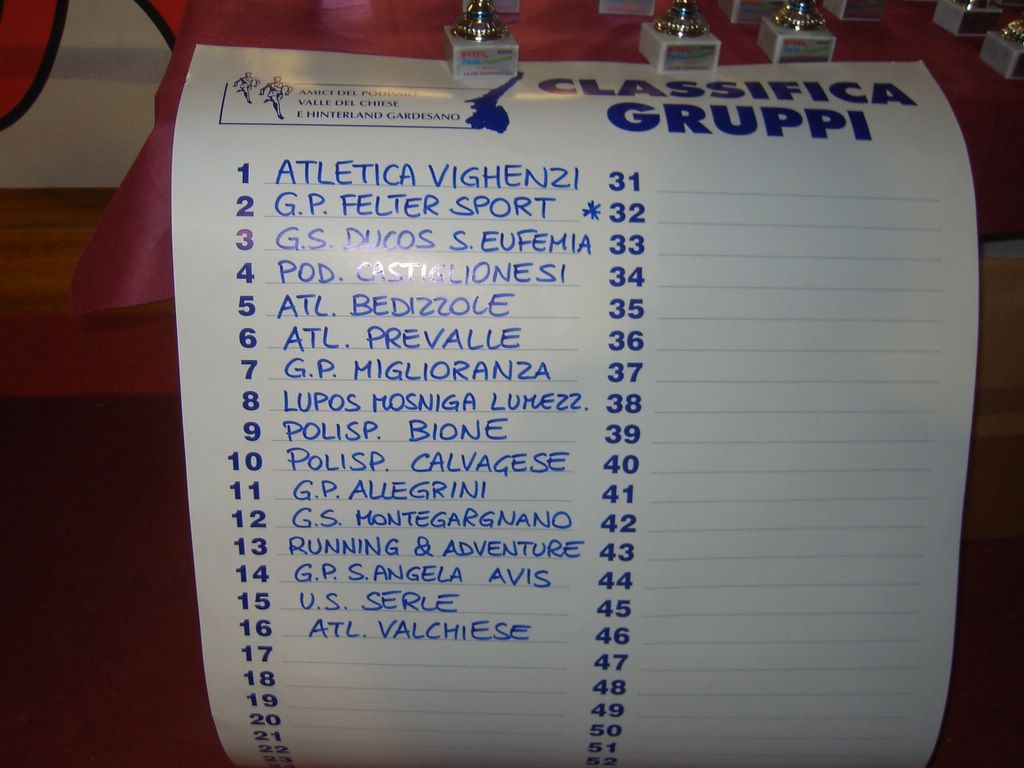 AMICI DEL PODISMO
VALLE DEL CHIESE
E HINTERLAND GARDESANO
CLASSIFICA
GRUPPI
1 ATLETICA VIGHENZI
2 G.P. FELTER SPORT *
3 G.S. DUCOS S. EUFEMIA
4 POD. CASTIGLIONESI
5 ATL. BEDIZZOLE
6 ATL. PREVALLE
7 G.P. MIGLIORANZA
8 LUPOS MOSNIGA LUMEZZ.
9 POLISP. BIONE
10 POLISP. CALVAGESE
11 G.P. ALLEGRINI
12 G.S. MONTEGARGNANO
13 RUNNING & ADVENTURE
14 G.P. S. ANGELA AVIS
15 U.S. SERLE
16 ATL. VALCHIESE
17
18
19
20
21
22
23
31
32
33
34
35
36
37
38
39
40
41
42
43
44
45
46
47
48
49
50
51
52